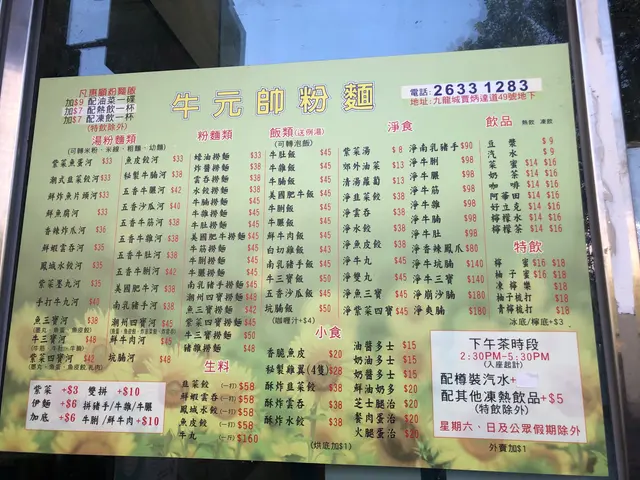 凡惠顧粉麵飯
加$9 配油菜一碟
加$7 配熱飲一杯
加$7 配凍飲一杯
(特飲除外)
牛元帥粉麵
電話: 2633 1283
地址: 九龍城賈炳達道49號地下
湯粉麵類
(可轉米粉・米線・粗麵・幼麵)
紫菜魚蛋河 $33
潮式韮菜餃河 $33
鮮炸魚片頭河 $33
鮮魚腐河 $33
香辣炸瓜河 $36
鮮蝦雲吞河 $35
鳳城水餃河 $35
紫菜墨丸河 $35
手打牛丸河 $40
魚三寶河 $38
牛三寶河 $48
紫菜四寶河 $42
魚皮餃河 $33
秘製牛腩河 $42
五香牛腱河 $42
五香沙瓜河 $40
五香牛筋河 $38
五香牛雜河 $38
五香牛肚河 $38
五香牛𦟌河 $42
美國肥牛河 $38
南乳豬手河 $38
潮州四寶河 $45
坑腩河 $48
粉麵類
蠔油撈麵 $33
炸醬撈麵 $38
雲吞撈麵 $38
水餃撈麵 $38
牛腩撈麵 $45
牛雜撈麵 $45
牛肚撈麵 $45
美國肥牛撈麵 $45
牛筋撈麵 $45
牛𦟌撈麵 $45
牛腱撈麵 $45
南乳豬手撈麵 $45
潮州四寶撈麵 $48
魚三寶撈麵 $42
紫菜四寶撈麵 $45
牛三寶撈麵 $50
豬雜撈麵 $48
飯類(送例湯)
(可轉泡飯)
牛肚飯 $45
牛筋飯 $45
牛腩飯 $45
美國肥牛飯 $45
牛𦟌飯 $45
牛雜飯 $45
鮮牛肉飯 $45
白切雞飯 $43
南乳豬手飯 $45
牛三寶飯 $50
五香沙瓜飯 $45
坑腩飯 $50
(咖喱汁+$4)
淨食
紫菜湯 $8
郊外油菜 $13
清湯蘿蔔 $13
淨韮菜餃 $38
淨雲吞 $38
淨水餃 $38
淨魚皮餃 $38
淨牛丸 $45
淨雙丸 $45
淨魚三寶 $45
淨紫菜四寶 $45
淨南乳豬手 $90
淨牛𦟌 $90
淨牛腱 $90
淨牛筋 $90
淨牛雜 $90
淨牛腩 $90
淨牛肚 $90
淨香辣鳳瓜 $80
淨牛坑腩 $140
淨牛三寶 $140
淨崩沙腩 $180
淨爽腩 $180
飲品 熱飲 凍飲
豆漿 $9
汽水 $9
菜蜜 $14 $16
奶茶 $14 $16
咖啡 $14 $16
阿華田 $14 $16
好立克 $14 $16
檸檬水 $14 $16
檸檬茶 $14 $16
特飲
檸蜜 $16 $18
柚子蜜 $16 $18
凍檸樂 $18
柚子梳打 $18
青檸梳打 $18
冰底/檸底+$3
小食
香脆魚皮 $20
秘製雞翼(4隻) $28
酥炸韮菜餃 $38
酥炸雲吞 $38
酥炸水餃 $38
油醬多士 $15
奶油多士 $15
奶醬多士 $15
鮮油奶多 $20
芝士腿治 $20
餐肉蛋治 $20
火腿蛋治 $20
(烘底加$1)
生料
韮菜餃 (一打) $58
鮮蝦雲吞 (一打) $58
鳳城水餃 (一打) $58
魚皮餃 (一打) $58
牛丸 (一斤) $160
紫菜 +$3 雙拼 +$10
伊麵 +$6 拼豬手/牛雜/牛腱
加底 +$6 牛𦟌/鮮牛肉 +$10
下午茶時段
2:30PM-5:30PM
(入座起計)
配樽裝汽水+
配其他凍熱飲品+$5
(特飲除外)
星期六、日及公眾假期除外
外賣加$1